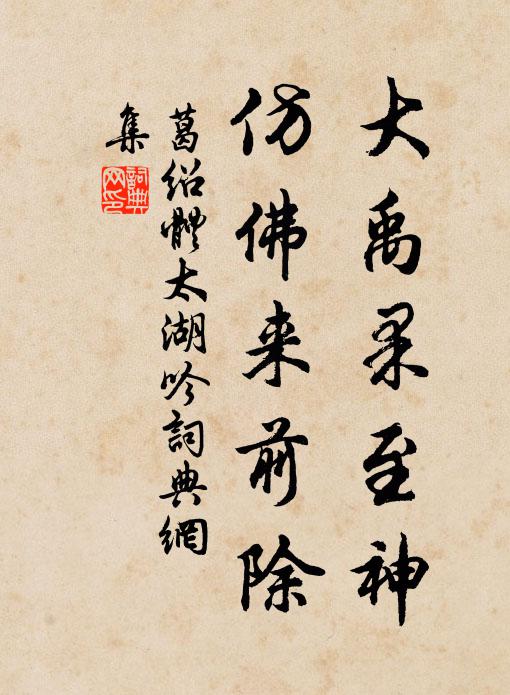 大禹果至神
仿佛来前除
葛绍體太湖吟詞典網
集
詞典网印